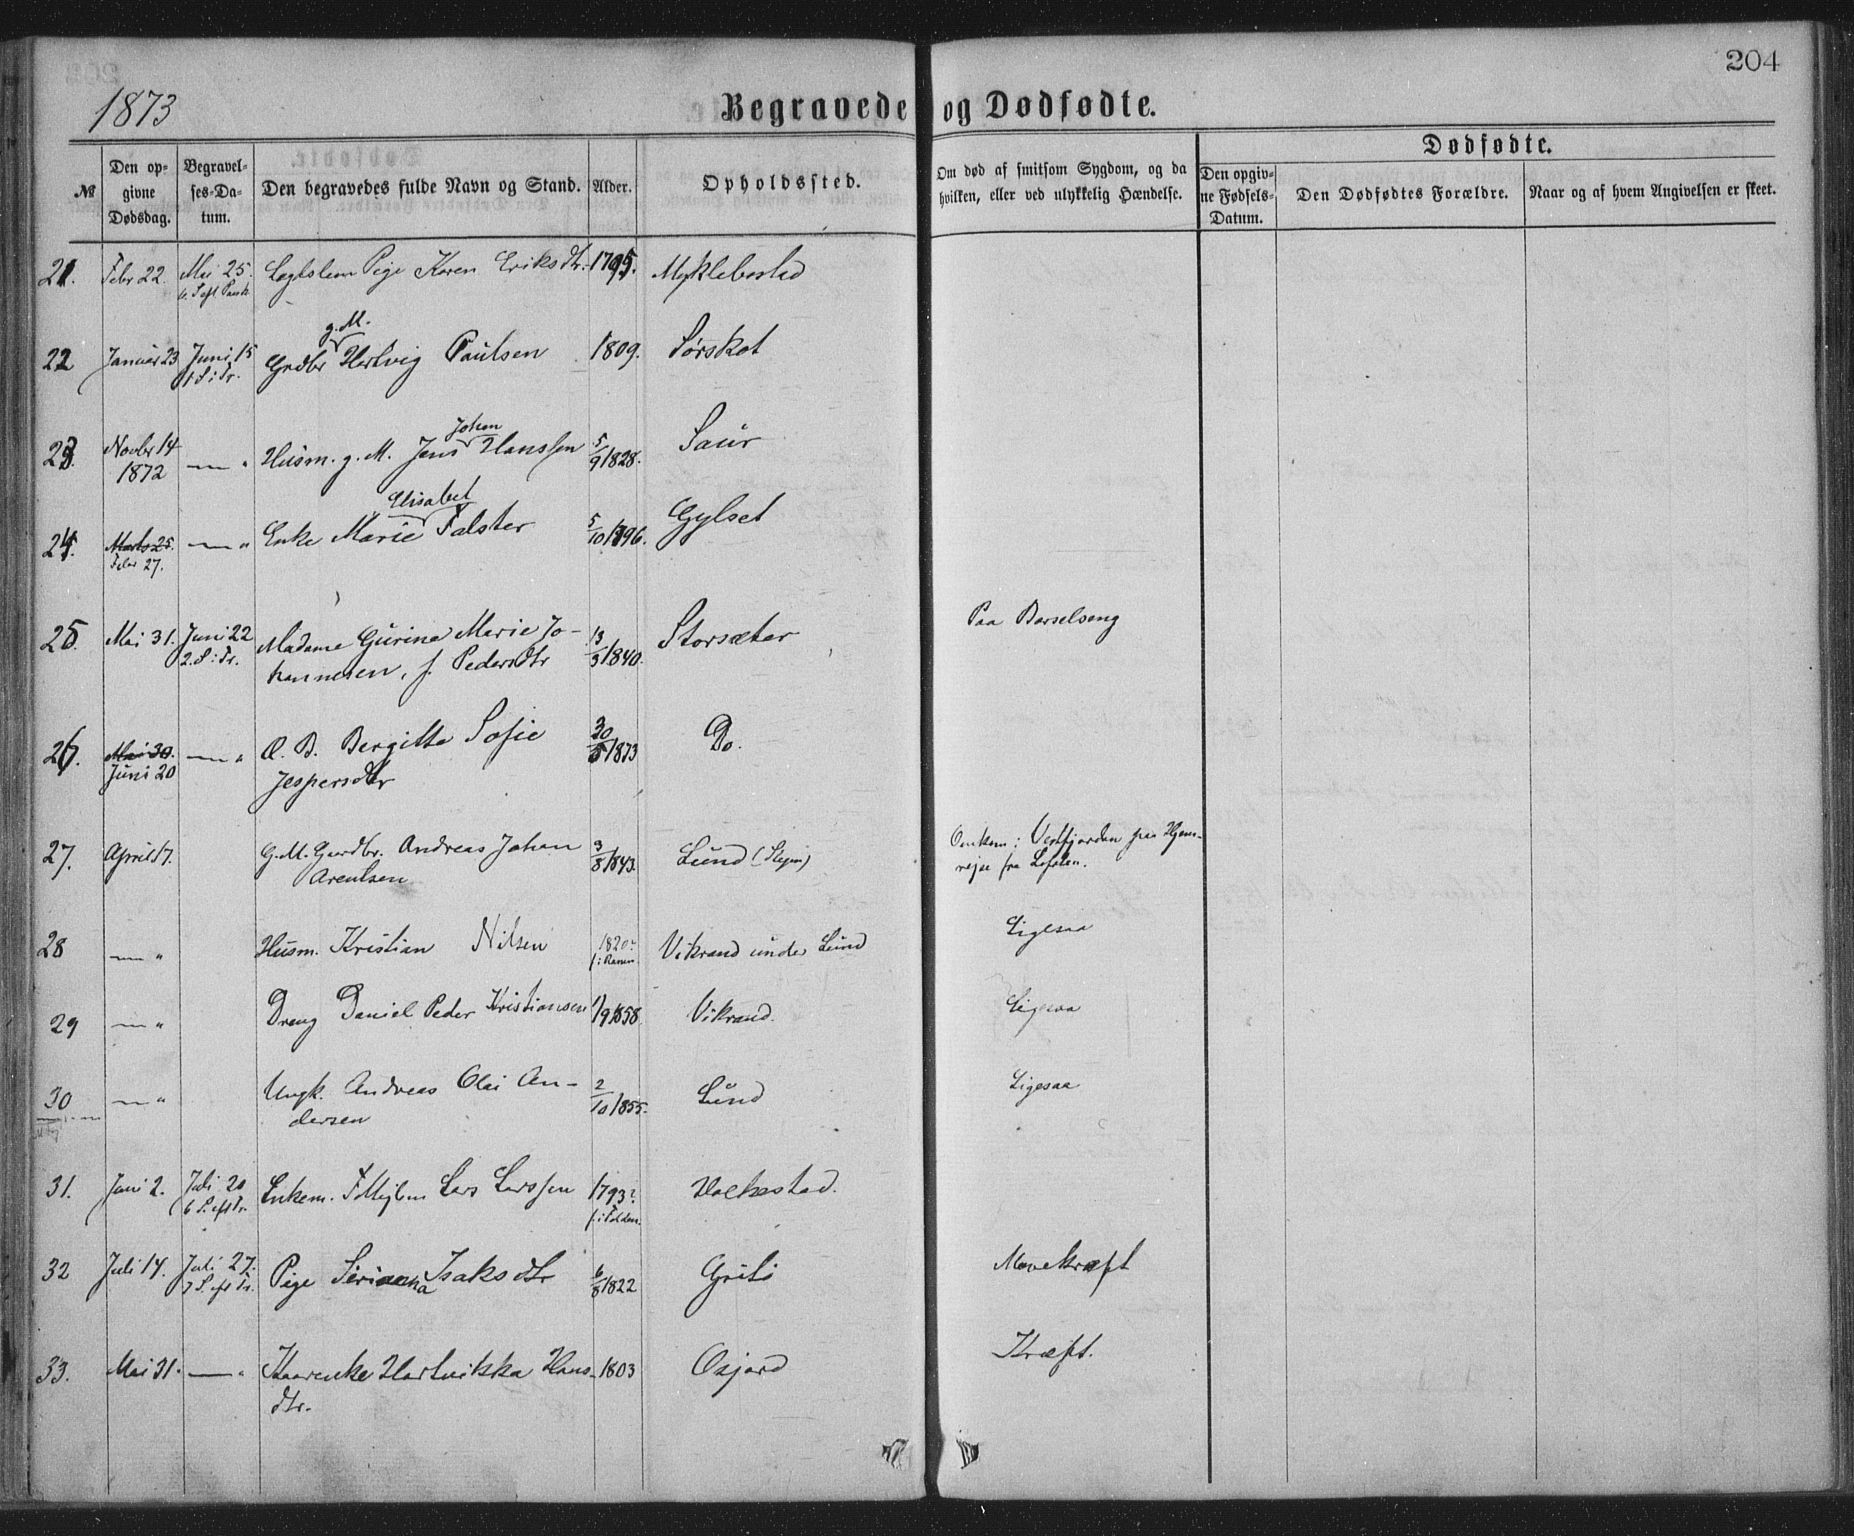 204
1873
Begravede og Dødfødte.
№
Den opgivne Dødsdag.
Begravelses-Datum.
Den begravedes fulde Navn og Stand.
Alder.
Opholdssted.
Om død af smitsom Sygdom, og da hvilken, eller ved ulykkelig Hændelse.
Dødfødte.
Den opgivne Fødsels-Datum.
Den Dødfødtes Forældre.
Naar og af hvem Angivelsen er skeet.
21. Febr 22. Mai 25. Pige Karen Eriksdtr. 1795. Myklebostad
6. S eft Paask
g. M.
22 Januar 23 Juni 15 Grdbr Hartvig Paulsen 1809. Sørskot
1 S. i Tr.
Johan
23. Novbr 14 — " Husm. g. M. Jens Hanssen 5/9 1828. Saur
1872
Elisabet
24. Marts 25. — " Enke Marie Falster 5/10 1796. Gylset
Febr 27.
25 Mai 31. Juni 22 Madame Gurine Marie Jo- 13/3 1840. Storsæter Paa Barselseng
2. S. i Tr. hannesen, f. Pedersdtr
26. Mai 30. — " Æ. B. Bergitte Sofie 30/5 1873 Do.
Juni 20 Jespersdtr
27. April 17. G. M. Gaardbr. Andreas Johan 3/8 1843. Lund (Stejn) Omkom i Vestfjorden paa Hjem-
Arentsen rejse fra Lofoten.
28 — " Husm. Kristian Nilsen 1820? Vikrand under Lund Ligesaa
f. i Ranen
29 — " Dreng Daniel Peder Kristiansen 1/9 1858 Vikrand. Ligesaa
30 — " Ungk. Andreas Olai An- 2/10 1855. Lund Ligesaa
dersen
31. Juni 2. Juli 20 Enkem. Lars Larssen 1793? Holkestad.
6 S. eft Tr. f. i Folden.
32 Juli 14. Juli 27. Pige Serianna Isaksdtr 6/8 1822 Gritø Mavekræft
7 S. eft Tr.
33. Mai 31. — " Kaarenke Hartvikka Hans- 1803 Oxjord Kræft.
dtr.